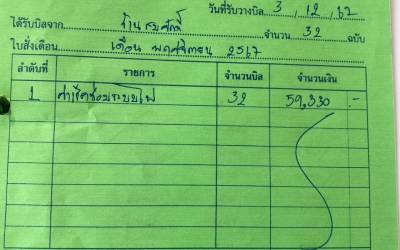 วันที่รับวางบิล 3 , 12 , 67
ได้รับบิลจาก ร้านสมศักดิ์ จำนวน 32 ฉบับ
ใบสั่งเดือน เดือน พฤศจิกายน 2567
ลำดับที่ รายการ จำนวนบิล จำนวนเงิน
1 ค่าเช็คซ่อมระบบไฟ 32 59,330 .-